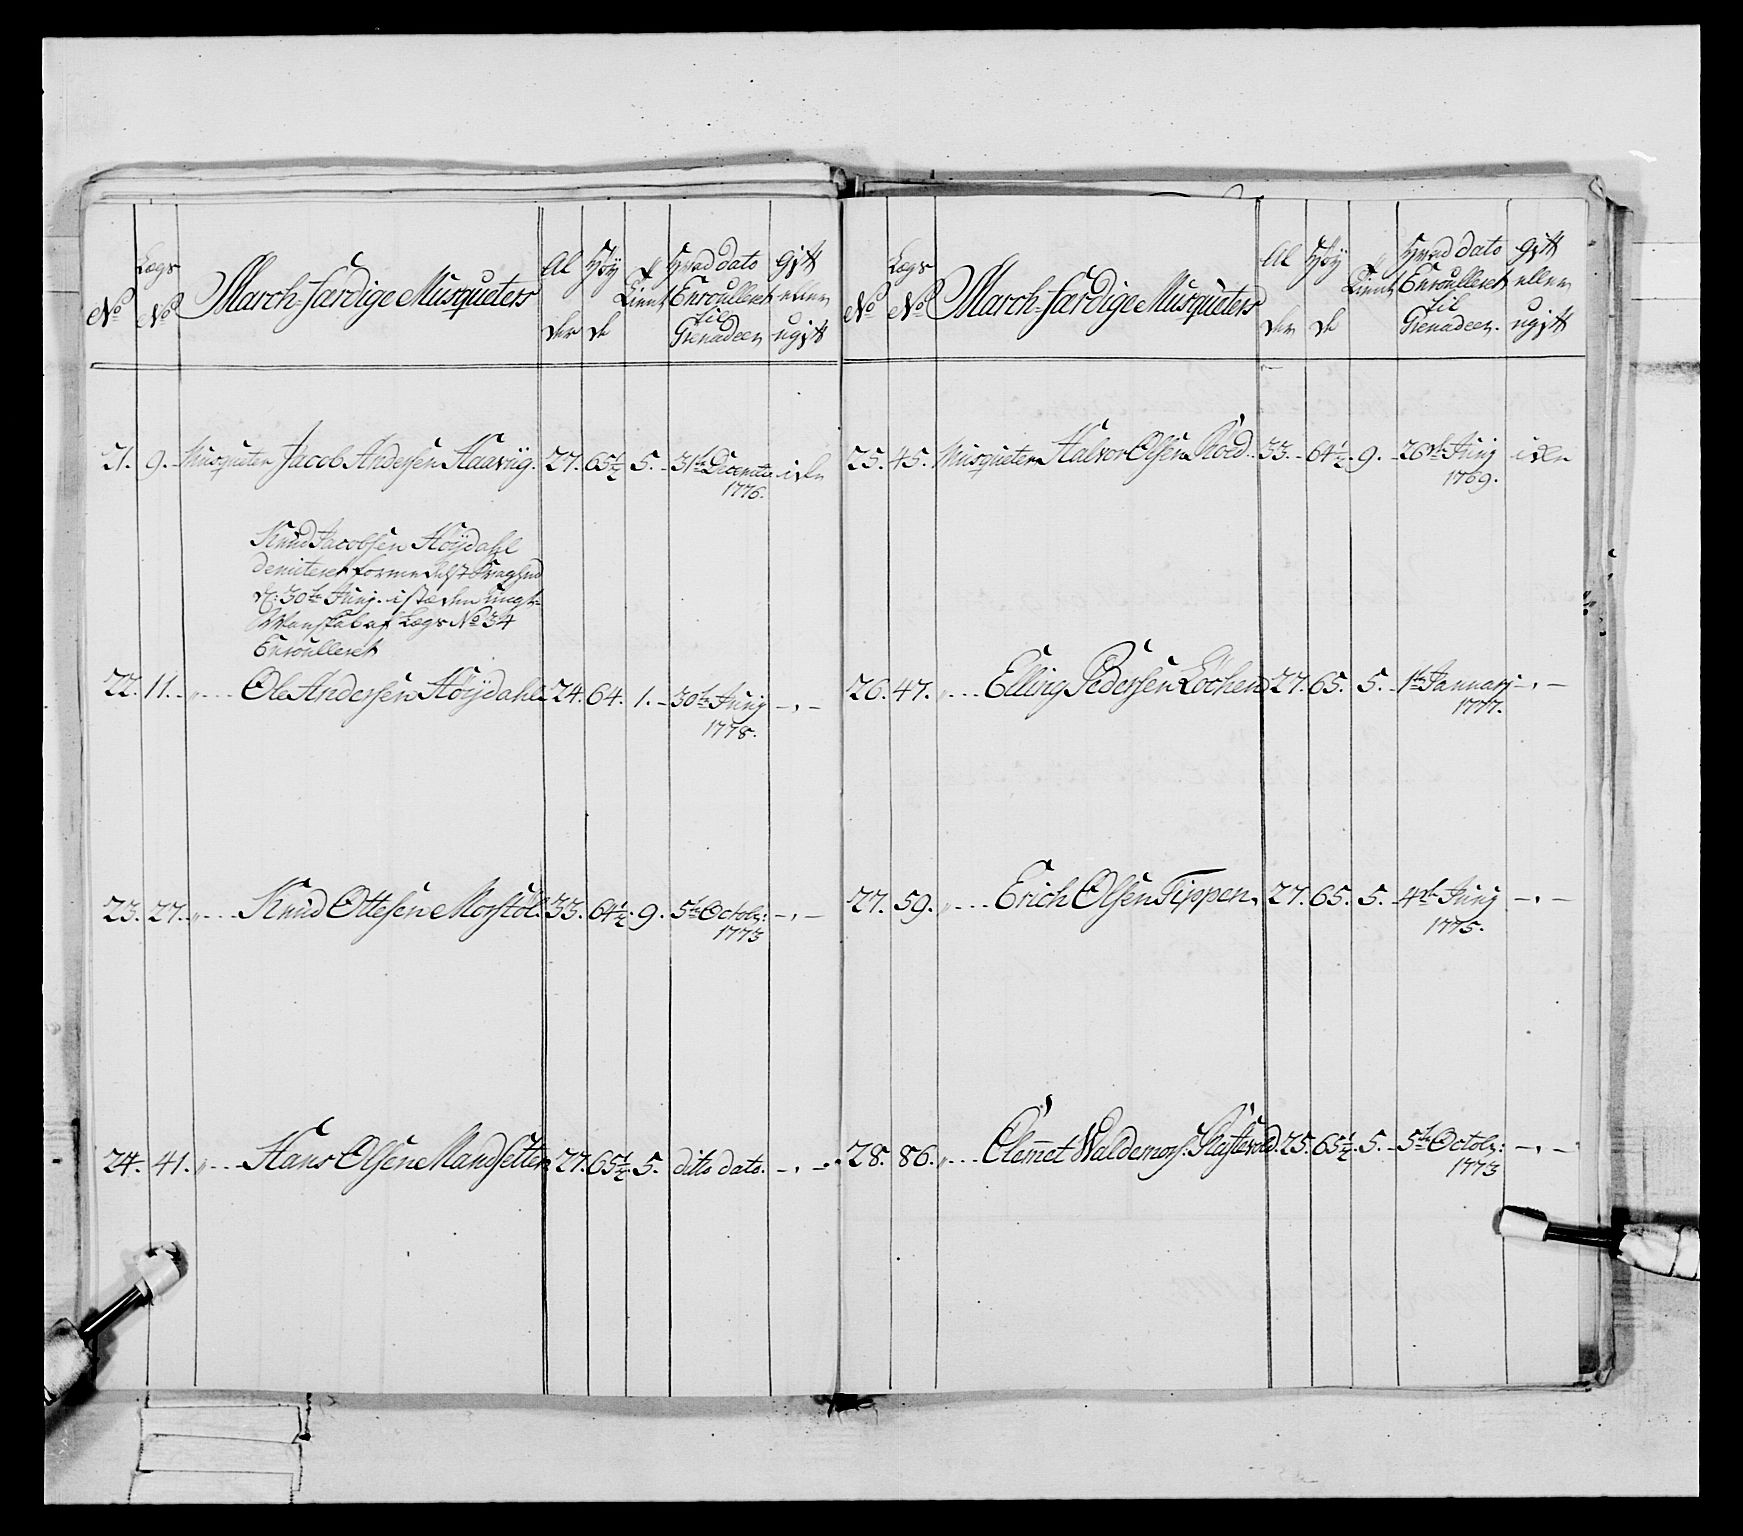 No Lægs No March-færdige Musqueterer Al der Høy de Tient Hvad dato Enroulleret til Grenadeer gift eller ugift
21. 9. Musqueteer Jacob Andersen Haavüg. 27. 65½ 5. 31te Decembr 1776.
Knud Jacobsen Höÿdahl
demiteret formedelst Svaghed
d: 30te Junÿ. i stæden ungt
Mandskab af Lægs No 34
Enroulleret
22. 11. „ Ole Andersen Höÿdahl 24. 64. 1. 30te Junÿ 1778. – „ –
23. 27. „ Knud Ottesen Morstöl. 33. 64½. 9. 5te Octobr: 1773 – „ –
24. 41. „ Hans Olsen Mandsetter 27. 65½ 5. dito dato. – „ –
No Lægs No March-færdige Musqueterer Al der Høy de Tient Hvad dato Enroulleret til Grenadeer. gift eller ugift
25. 45. Musqueteer Halvor Olsen Röed. 33. 64½. 9. 26de Junÿ 1769.
26. 47. „ Elling Pedersen Löchen 27. 65. 5. 1te Januarj 1777. – „ –
27. 59. „ Erich Olsen Tippen. 27. 65. 5. 4de Junÿ 1775. – „ –
28. 86. „ Clemet Waldemors. 25. 65½. 5. 5te Octobr: 1773 – „ –